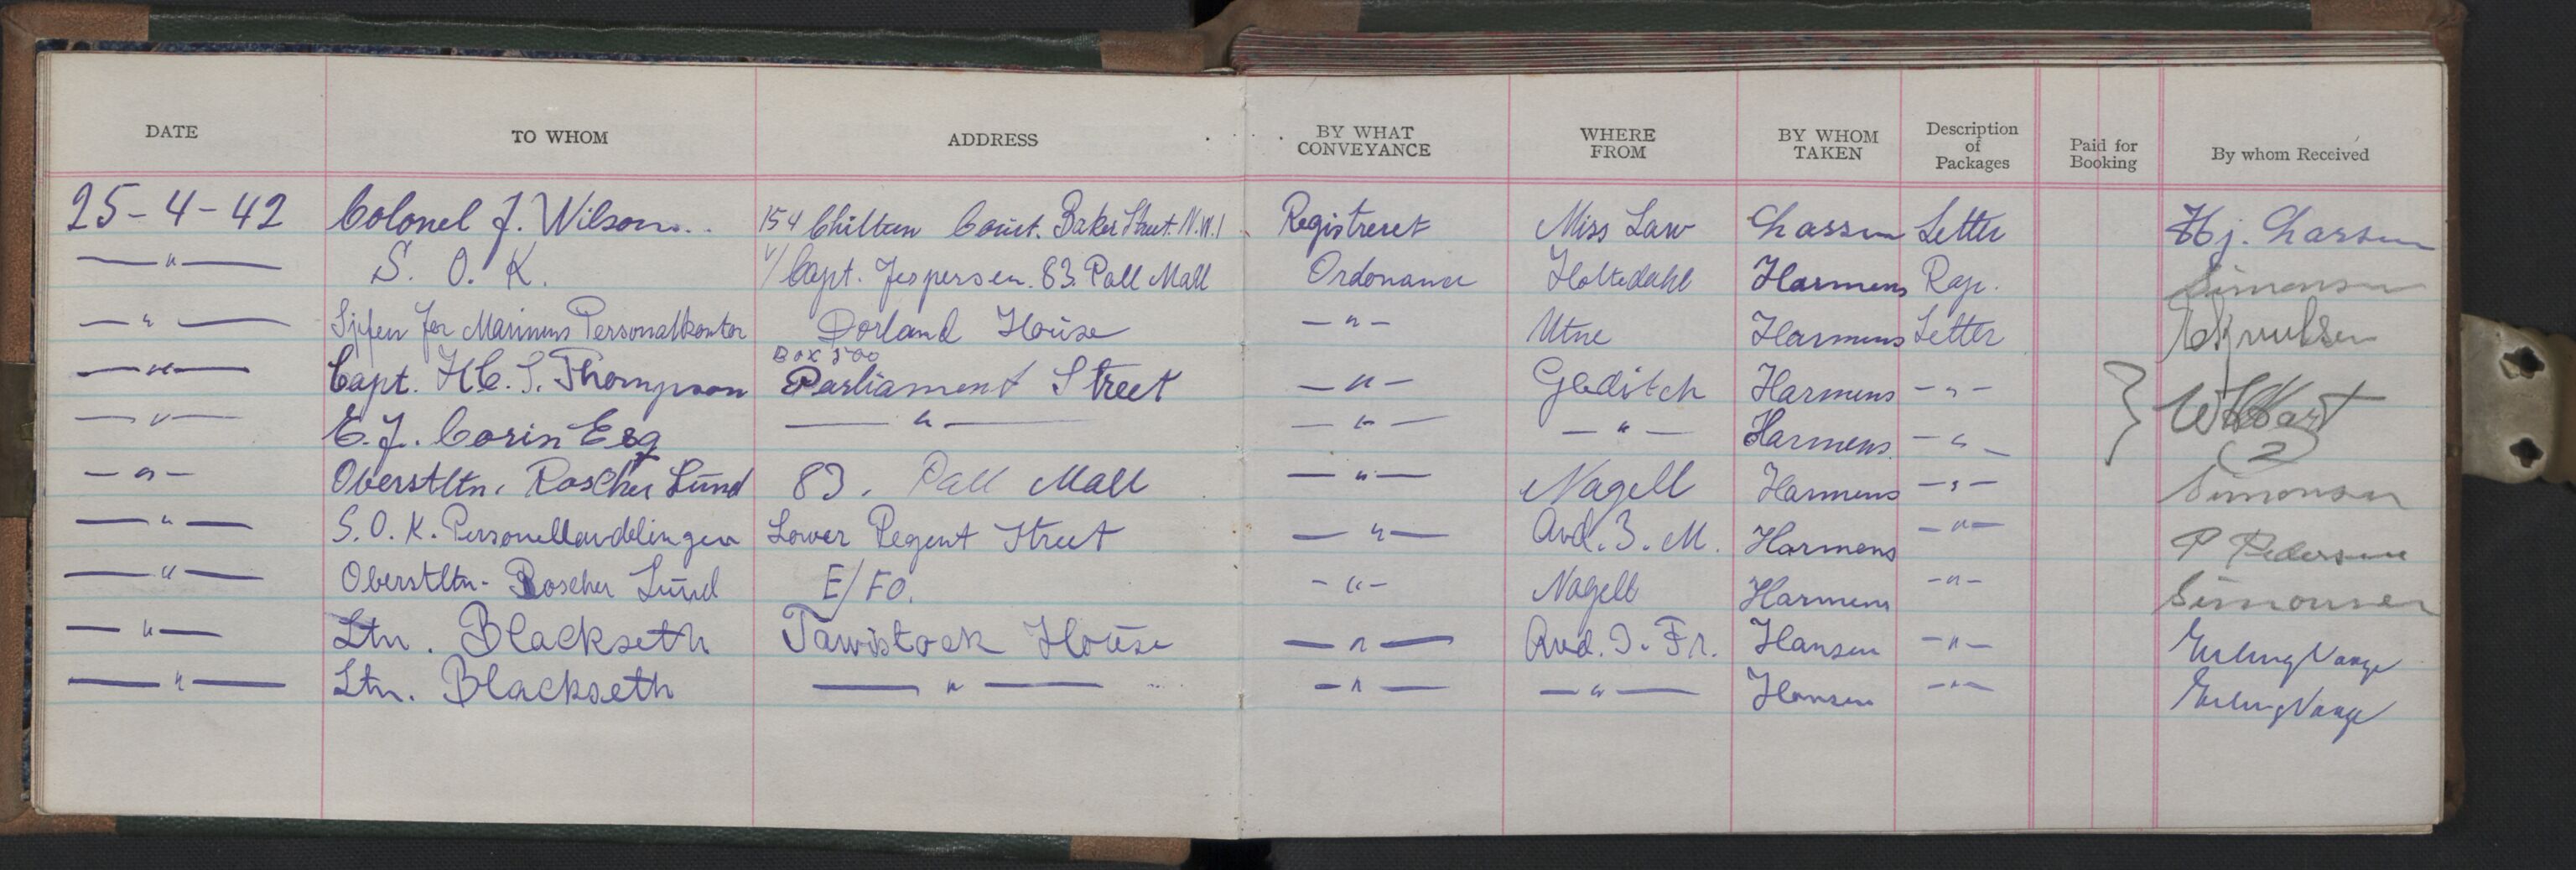 DATE TO WHOM ADDRESS BY WHAT CONVEYANCE WHERE FROM BY WHOM TAKEN Description of Packages Paid for Booking By whom Received
25-4-42 Colonel J. Wilson.. 154 Chiltern Court. Baker Street. N.W.1 Registreret Miss Law Larsen Letter Hj. Larsen
— " — S. O. K. v/ Capt. Jespersen. 83. Pall Mall Ordonance Holtedahl Harmens Rap. Simonsen
— " — Sjefen for Marinens Personalkontor Dorland House — " — Utne Harmens Letter Knutsen
— " — Capt. H.C.S. Thompson Box 500 Parliament Street — " — Gleditch Harmens — " —
— " — E.J. Corin Esq — " — — " — — " — Harmens. — " — } (2)
— " — Oberstltn. Roscher Lund 83. Pall Mall — " — Nagell Harmens — " — Simonsen
— " — S.O.K. Personellavdelingen Lower Regent Street — " — Avd. 3. M. Harmens — " — P Pedersen
— " — Oberstltn. Roscher Lund E/FO. — " — Nagell Harmens — " — Simonsen
— " — Ltn. Blackseth Tawistock House — " — Avd. 3. Fr. Hansen — " — Erling Vaage
— " — Ltn. Blackseth — " — — " — — " — Hansen — " — Erling Vaage